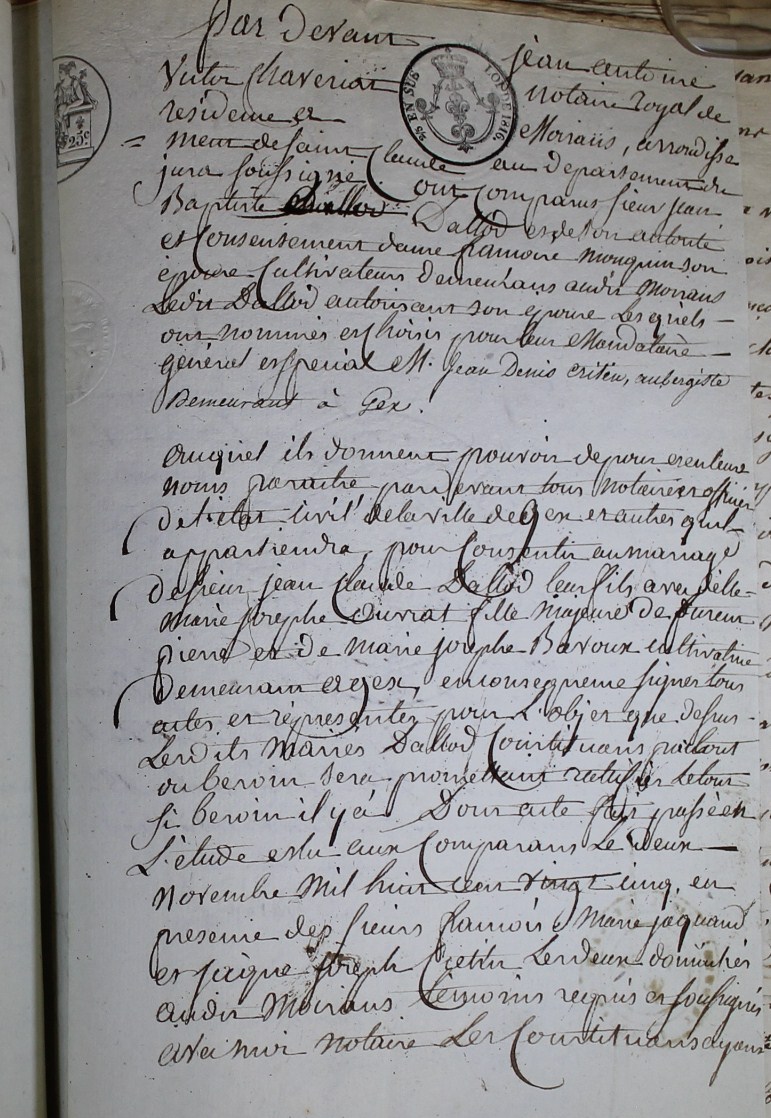 par Devant jean antoine
Victor Chavériat notaire royal de
résidence a Moirans, arrondisse
ment de saint Claude au département du
jura soussigné. Ont Comparus sieur jean
Baptiste Dallod Dallod et de son autorité
et Consentement dame francoise monquin son
épouse Cultivateurs demeurans audit Moirans
Ledit Dallod autorisant son épouse Lesquels
ont nommés et Choisis pour leur Mandataire
général et spécial M. Jean Denis aubergiste
Demeurant à Gex.
auquel ils donnent pouvoir de pour et en leurs
noms paraitre pardevant tous notaires et officiers
de l'état Civil de la ville de Gex et autres qu'il
appartiendra, pour Consentir au mariage
de sieur jean Claude Dallod leur fils avec delle
Marie josephe Ouvrat fille majeure de
pierre et de marie josephe Bavoux cultivatrice
Demeurant a Gex, en conséquence signer tous
actes et représenter pour L'objet que dessus
Lesdits Mariés Dallod Constituans partout
ou besoin sera promettant ratifier Le tout
si besoin il y a Dont acte fait passé en
L'étude et lu aux Comparans Le deux
novembre Mil huit cent vingt cinq, en
presence des sieurs francois Marie jaquand
et jacque joseph Cretin Les deux domiciliés
audit Moirans témoins requis et soussignés
avec moi notaire Les Constituans ayans
25c
EN SUS
LOI DE 1816